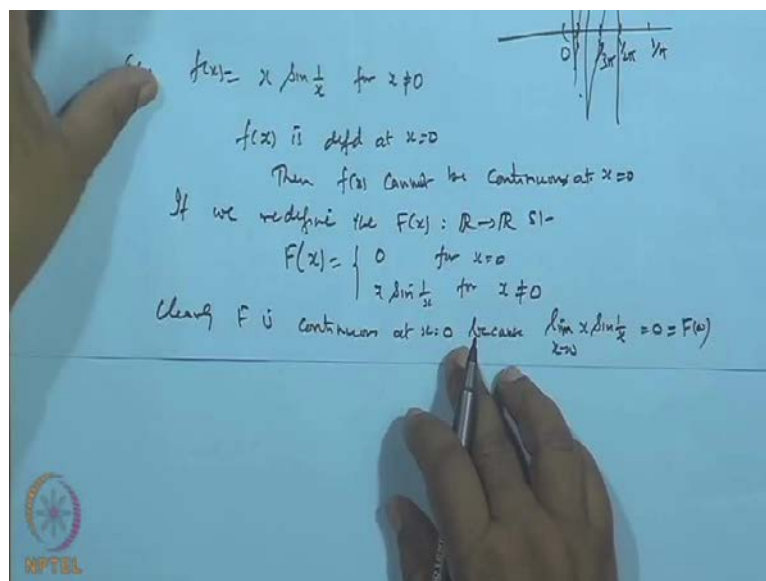 0 1/3π 1/2π 1/π
f(x) = x Sin 1/x for x≠0
f(x) is defd at x=0
Then f(x) Cannot be Continuous at x=0
If we redefine the F(x) : R→R S1-
F(x) = { 0 for x=0
x Sin 1/x for x≠0
Clearly F is continuous at x=0 because lim x→0 x Sin 1/x = 0 = F(0)
NPTEL